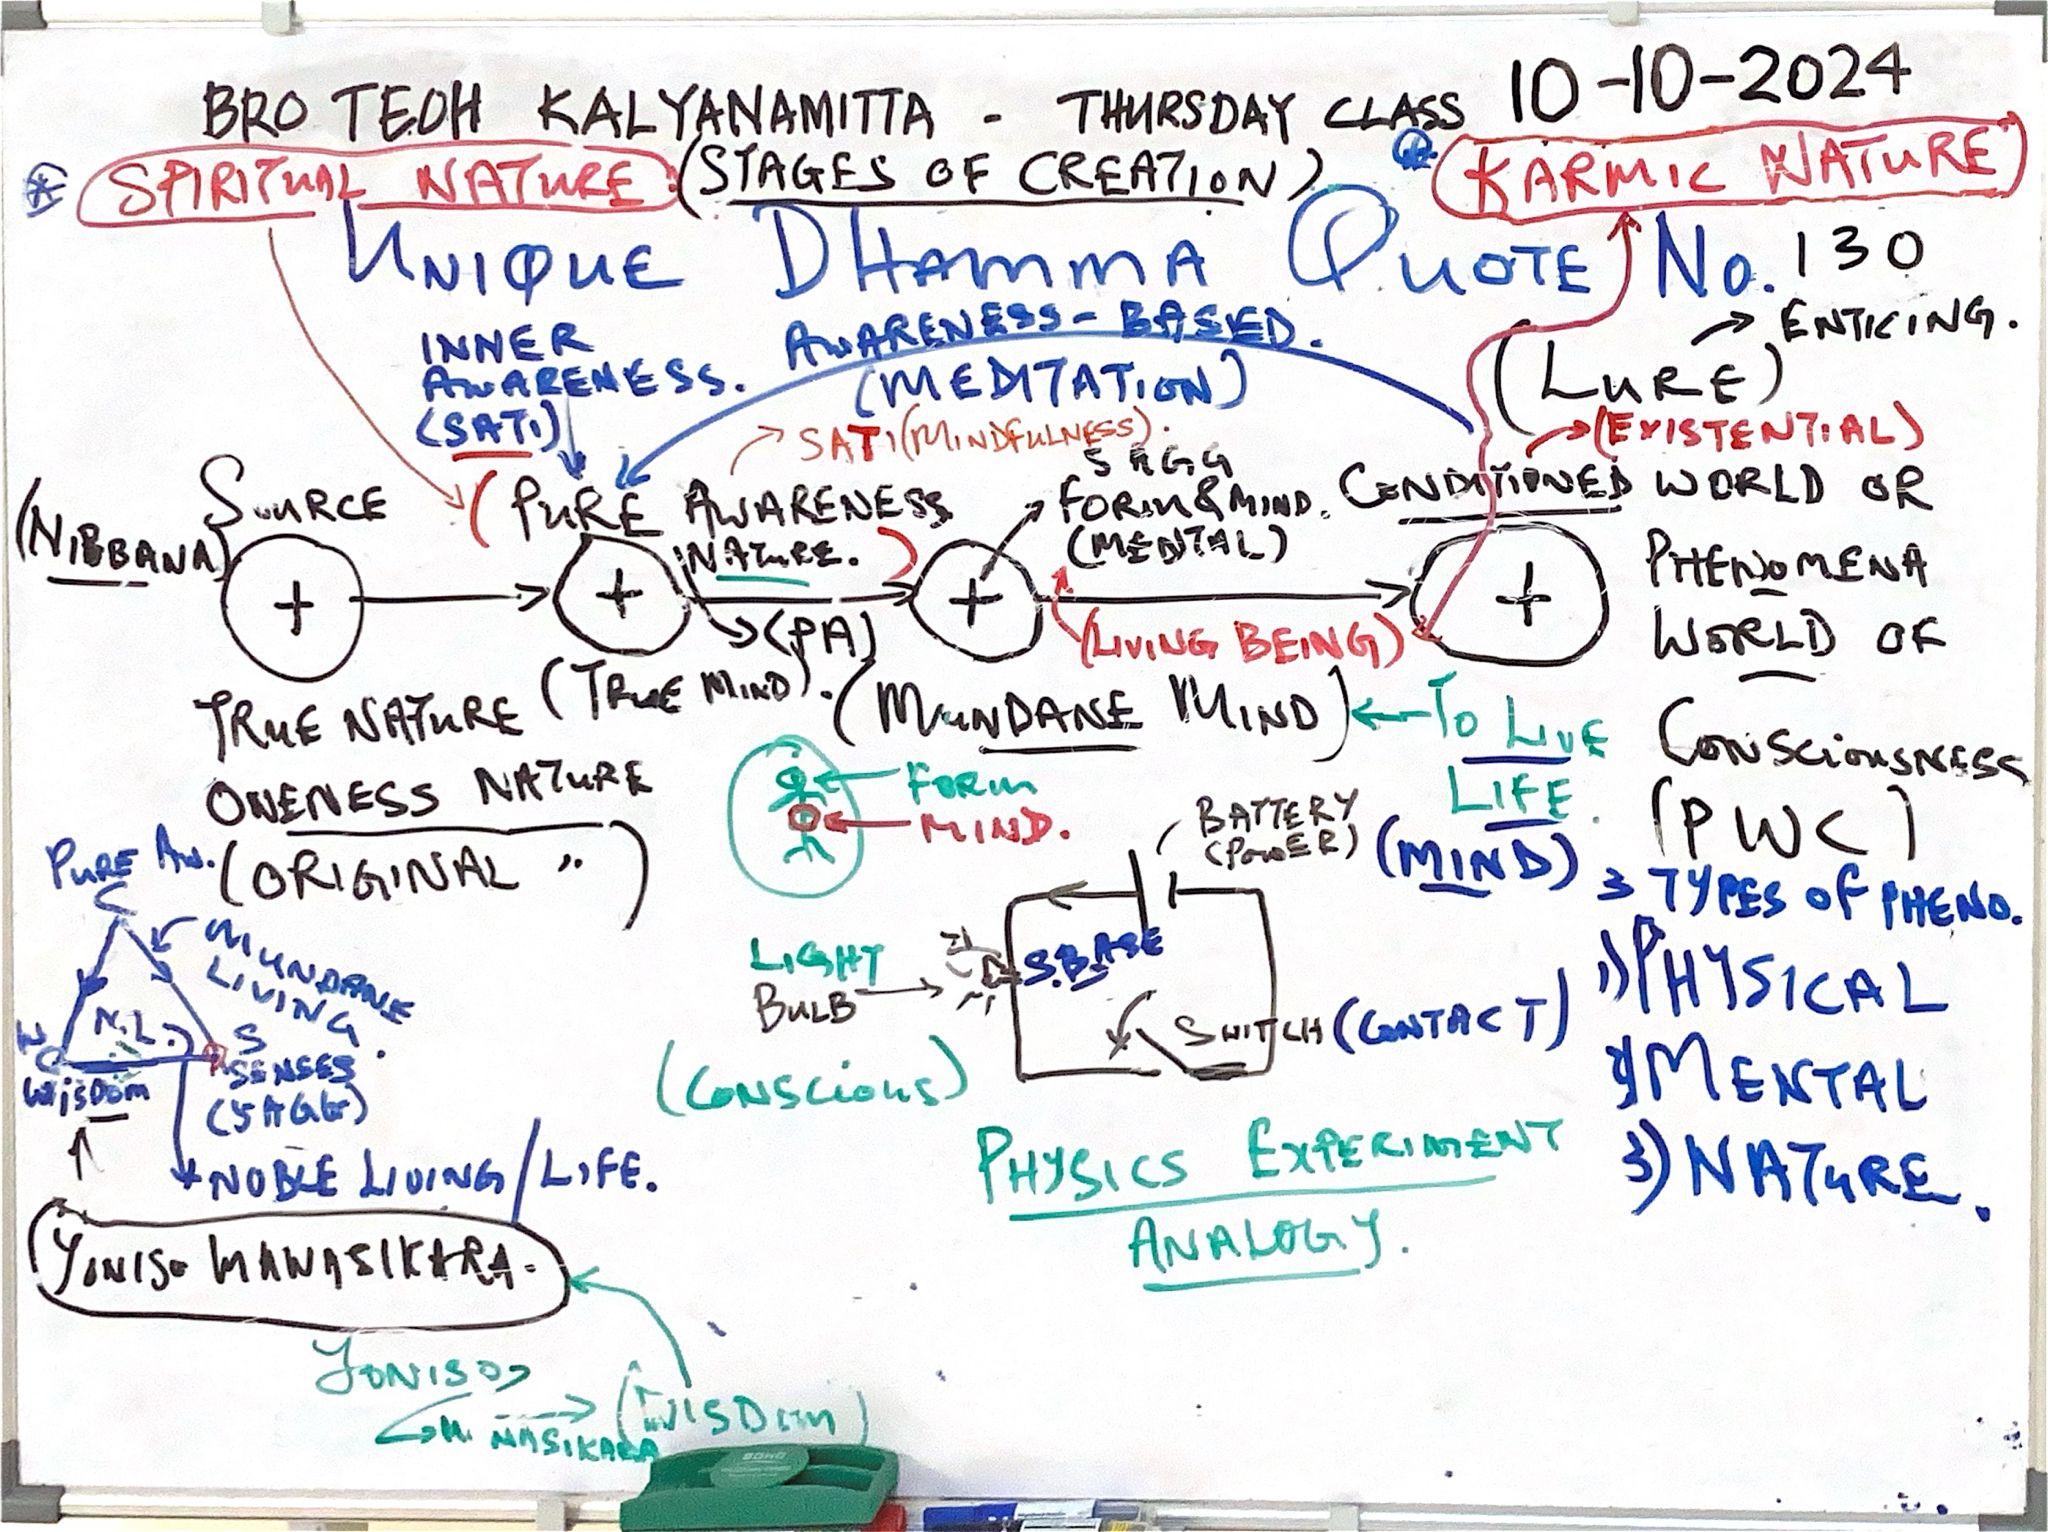 BRO TEOH KALYANAMITTA - THURSDAY CLASS 10-10-2024
* SPIRITUAL NATURE : (STAGES OF CREATION) * KARMIC NATURE
UNIQUE DHAMMA QUOTE No. 130
INNER AWARENESS. (SATI)
AWARENESS-BASED. (MEDITATION)
(LURE) → ENTICING.
→ (EXISTENTIAL)
→ SATI (MINDFULNESS).
(NIBBANA) SOURCE
(PURE AWARENESS NATURE.)
5 AGG
FORM & MIND.
(MENTAL)
CONDITIONED WORLD OR
PHENOMENA
WORLD OF
CONSCIOUSNESS
(PWC)
+ + + +
(PA)
(LIVING BEING)
TRUE NATURE (TRUE MIND). (MUNDANE MIND) ← TO LIVE
LIFE.
(MIND)
ONENESS NATURE
(ORIGINAL ")
FORM
MIND.
BATTERY
(POWER)
3 TYPES OF PHENO.
1) PHYSICAL
2) MENTAL
3) NATURE.
PURE AW.
MUNDANE
LIVING
N.L.
W
WISDOM
S
SENSES
(5 AGG)
NOBLE LIVING/LIFE.
LIGHT
BULB
(CONSCIOUS)
S.BASE
SWITCH (CONTACT)
PHYSICS EXPERIMENT
ANALOGY.
YONISO MANASIKARA.
YONISO
M. NASIKARA → (WISDOM)